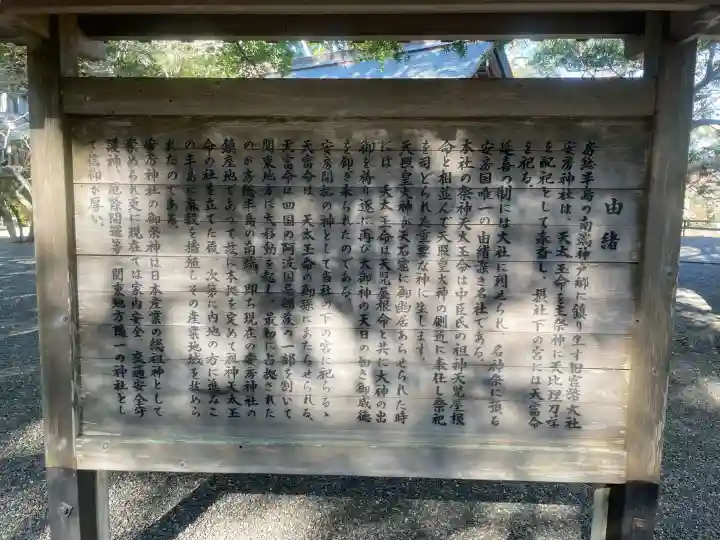 由緒
房総半島の南端神戸郷に鎮り坐す旧官幣大社
安房神社は、天太玉命を主祭神に天比理刀咩命
を配祀として奉斎し、摂社下の宮には天富命
を祀る。
延喜の制には大社に列せられ、名神祭に預る
安房国唯一の由緒深き名社である。
本社の祭神天太玉命は中臣氏の祖神天児屋根
命と相並んで天照皇大神の側近に奉仕し祭祀
を司どられた重要な神に坐します。
天照皇大神が天石窟に御幽居あらせられた時
には、天太玉命は天児屋根命と共に大神の出
御を祷り遂に再び大御神の天日の如き御威徳
を仰ぎ奉られたのである。
安房開記の神として当社の下の宮に祀らるゝ
天富命は、天太玉命の御孫にあたらせられる。
天富命は四国の阿波国忌部族の一部を割いて
関東地方に大移動を起し、最初に占拠された
のが房総半島の南端、即ち現在の安房神社の
鎮座地であって故に本拠を定めて祖神天太玉
命の社を立てた後、次第に内地の方に進みこ
の半島に麻穀を播殖しその産業地域を拡めら
れたのである。
安房神社の御祭神は日本産業の総祖神として
崇められ更に現在では家内安全、交通安全守
護神、厄除開運等、関東地方随一の神社とし
て信仰が厚い。